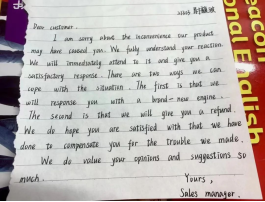 Dear customer,
I am sorry about the inconvenience our product
may have caused you. We fully understand your reaction.
We will immediately attend to it and give you a
satisfactory response. There are two ways we can
cope with the situation. The first is that we
will response you with a brand-new engine.
The second is that we will give you a refund.
We do hope you are satisfied with that we have
done to compensate you for the trouble we made.
We do value your opinions and suggestions so
much.
Yours,
Sales manager.
eacon
onal English